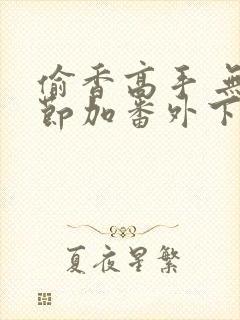 偷香高手 無
節加番外下
夏夜星繁